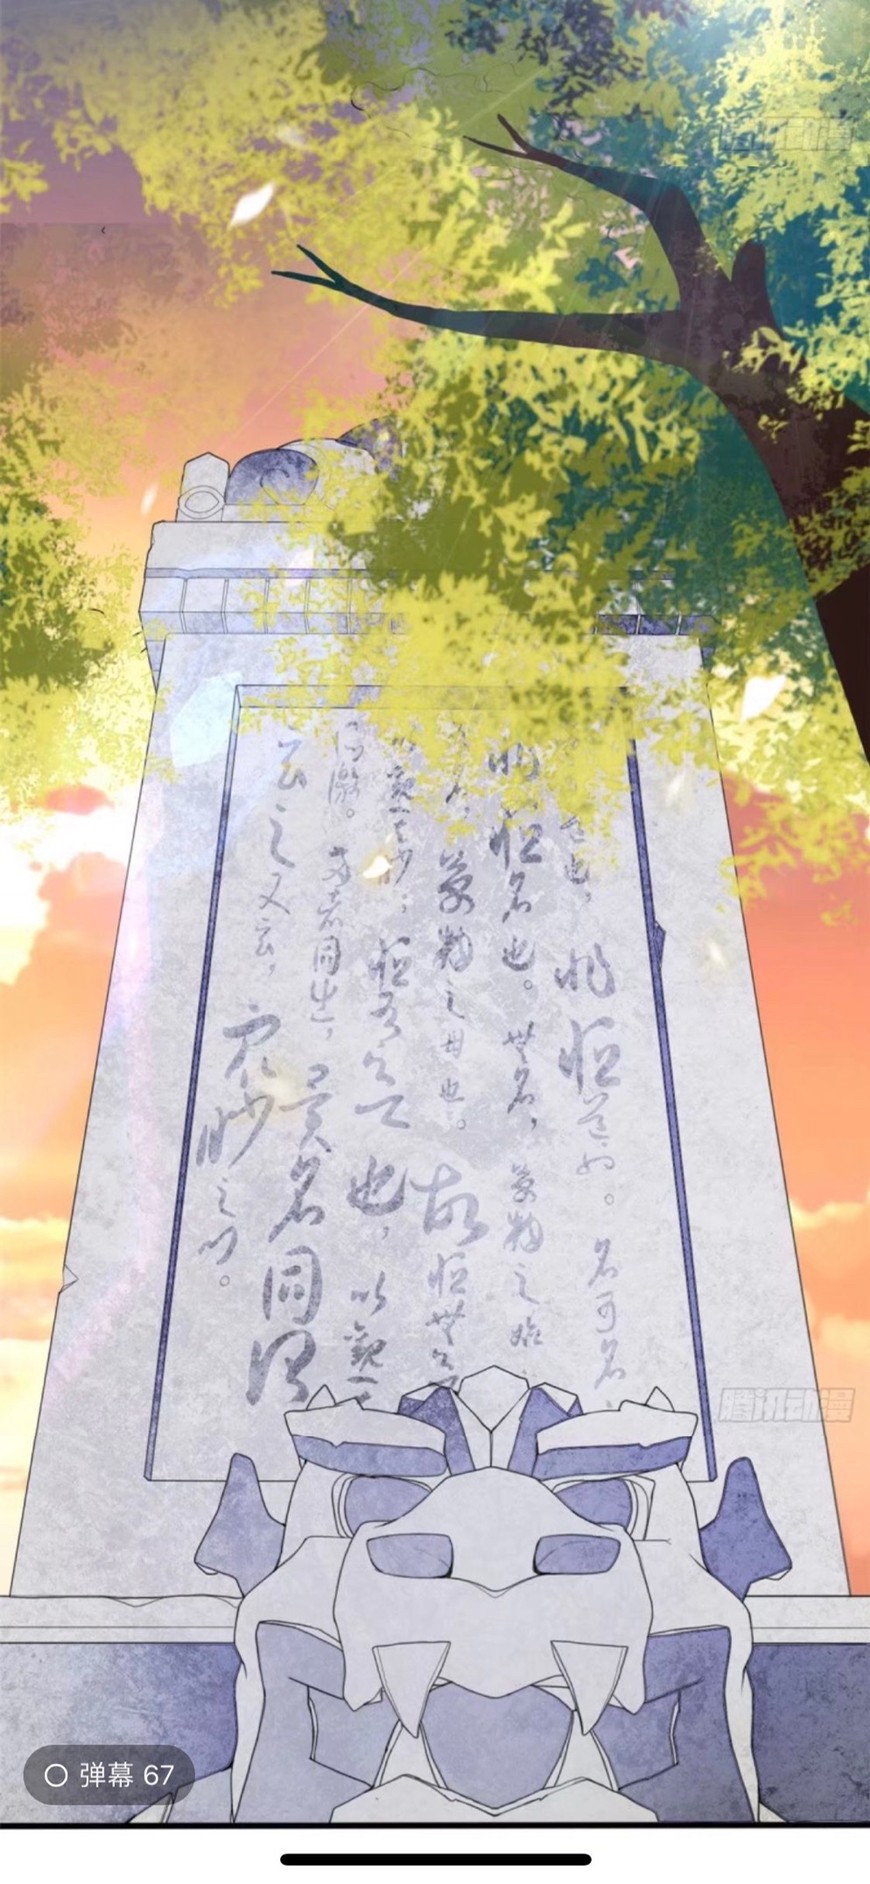 也，非恒道也。名可名
非恒名也。無名，萬物之始
名，萬物之母也。故恒無欲
以觀其妙；恒有欲也，以觀其
所徼。两者同出，異名同谓
玄之又玄，眾妙之门。
腾讯动漫
腾讯动漫
弹幕 67